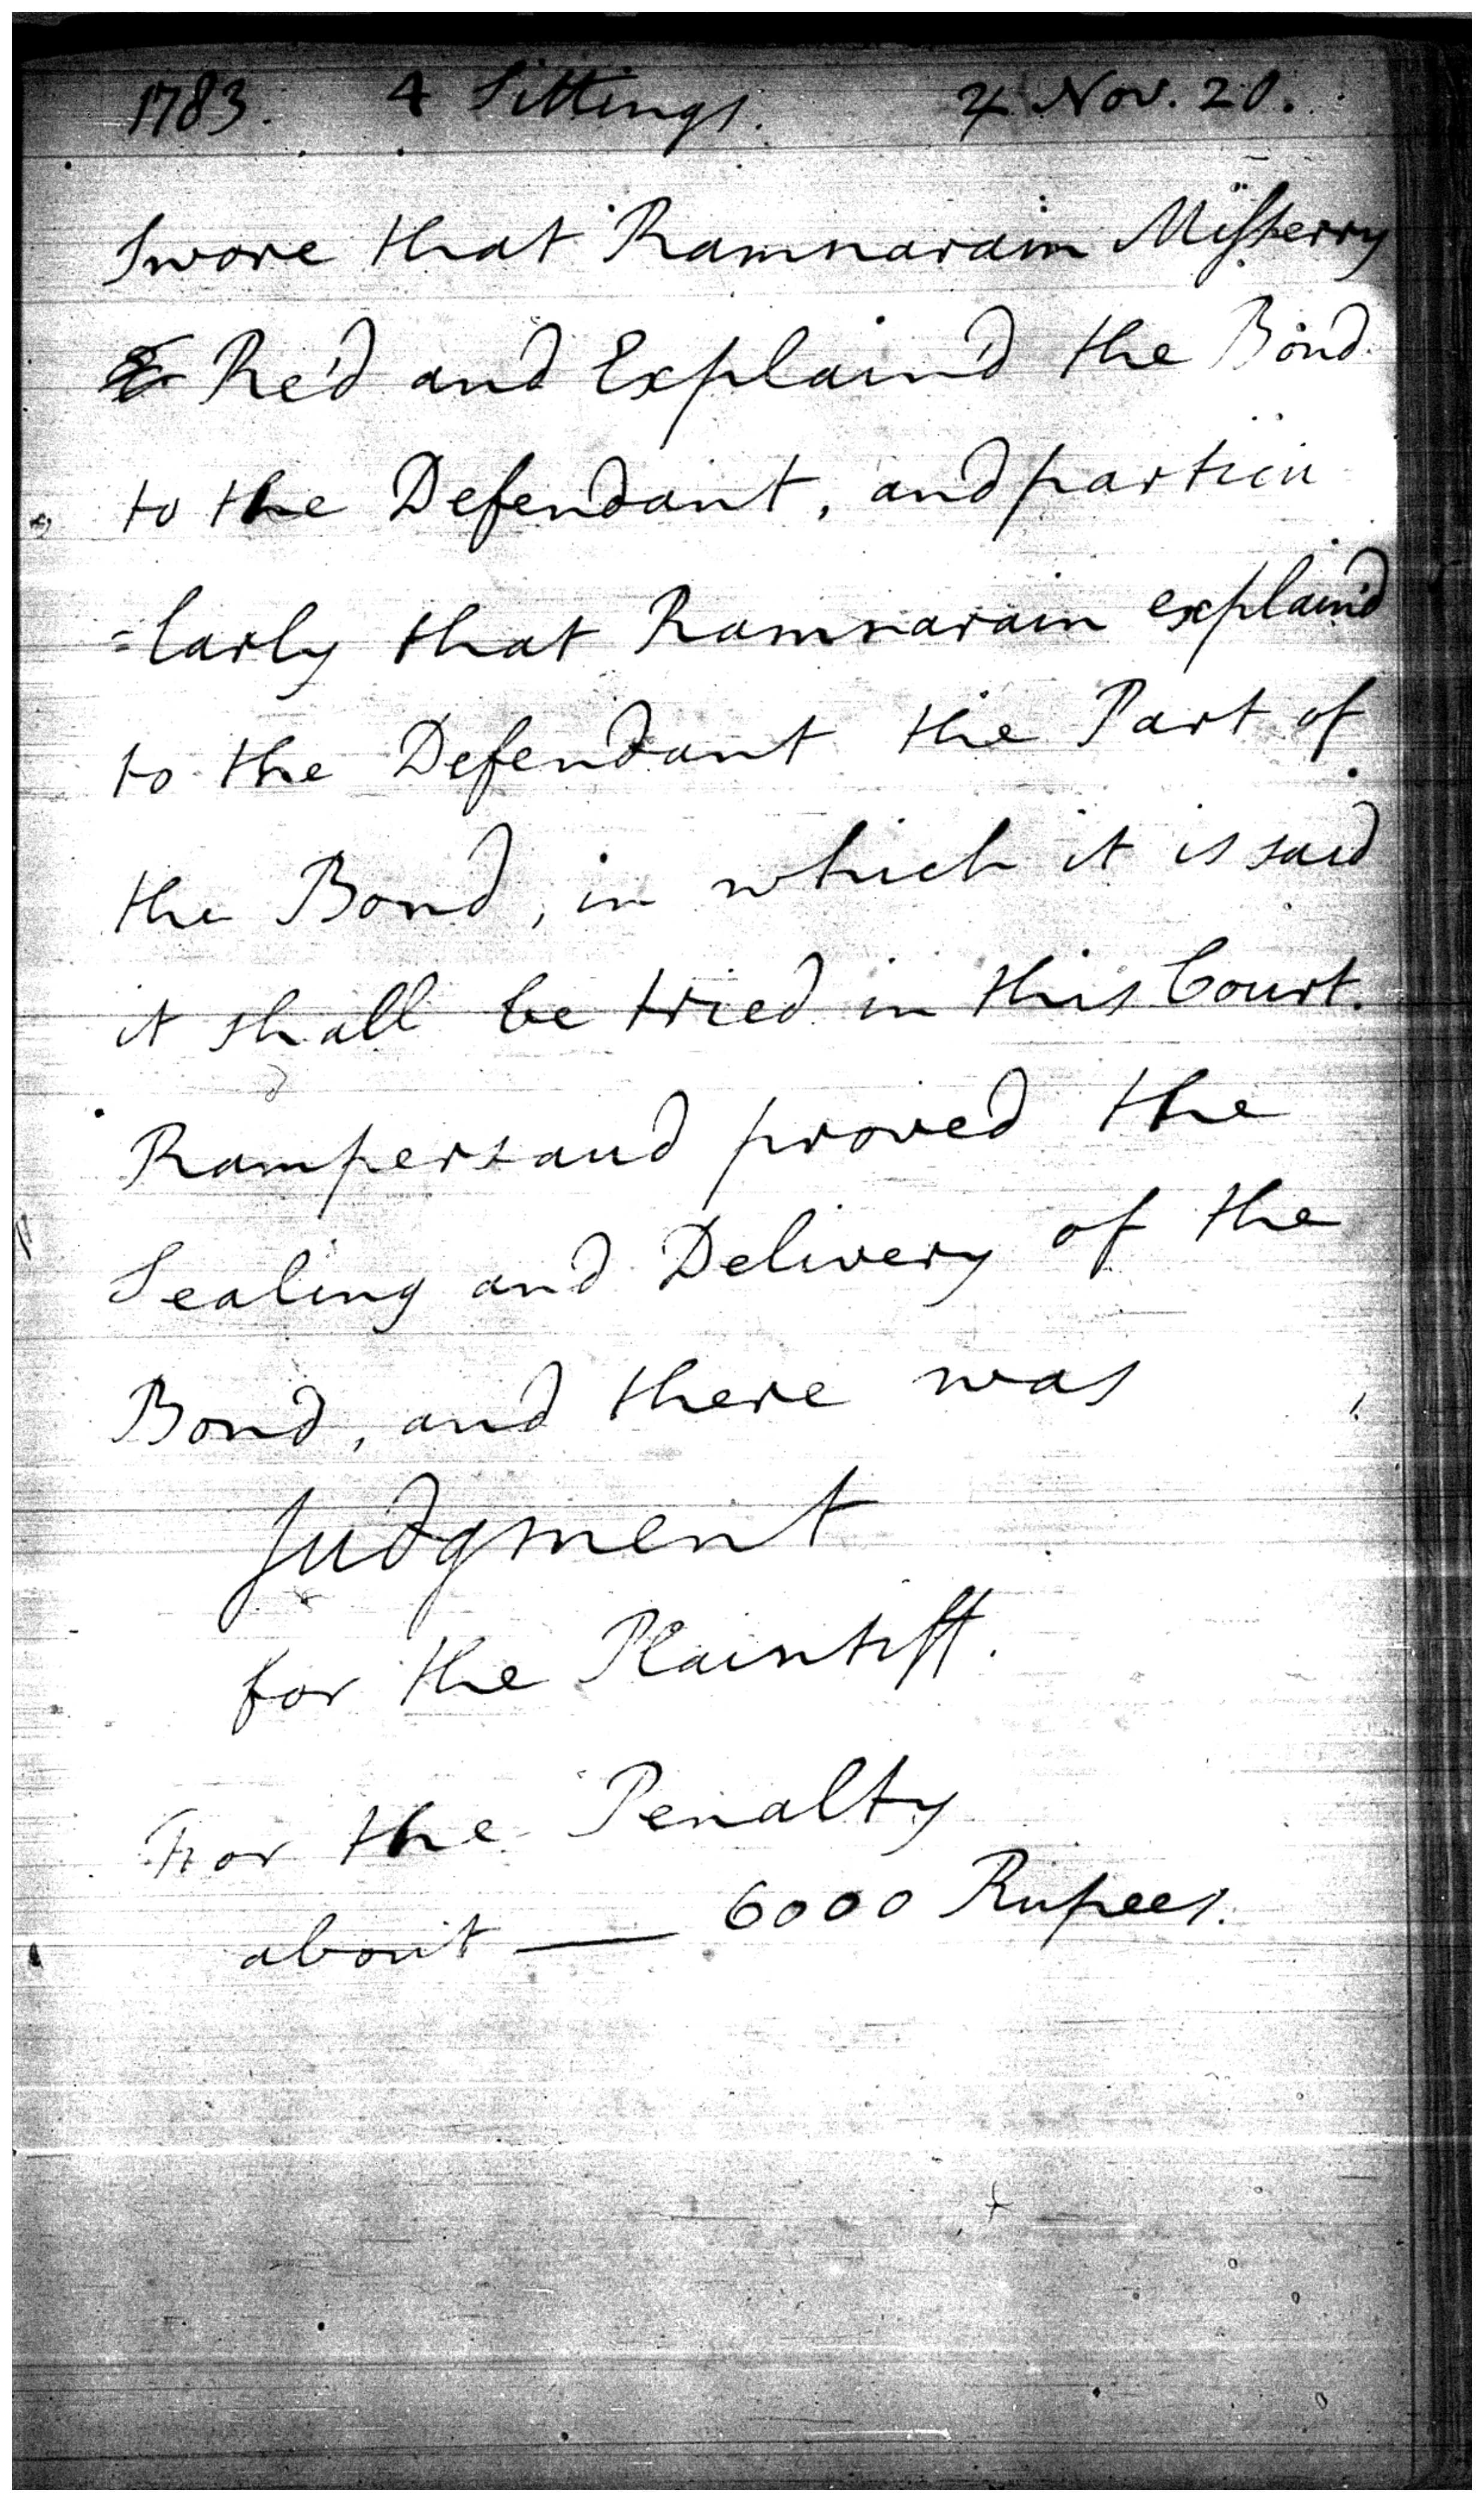 1783. 4 Sittings. ♃ Nov. 20.
Swore that Ramnarain Misserry
Re'd and Explain'd the Bond
to the Defendant, and particu
=larly that Ramnarain explain'd
to the Defendant the Part of
the Bond, in which it is said
it shall be tried in this Court.
Rampersaud proved the
Sealing and Delivery of the
Bond, and there was
Judgment
for the Plaintiff.
For the Penalty
about — 6000 Rupees.